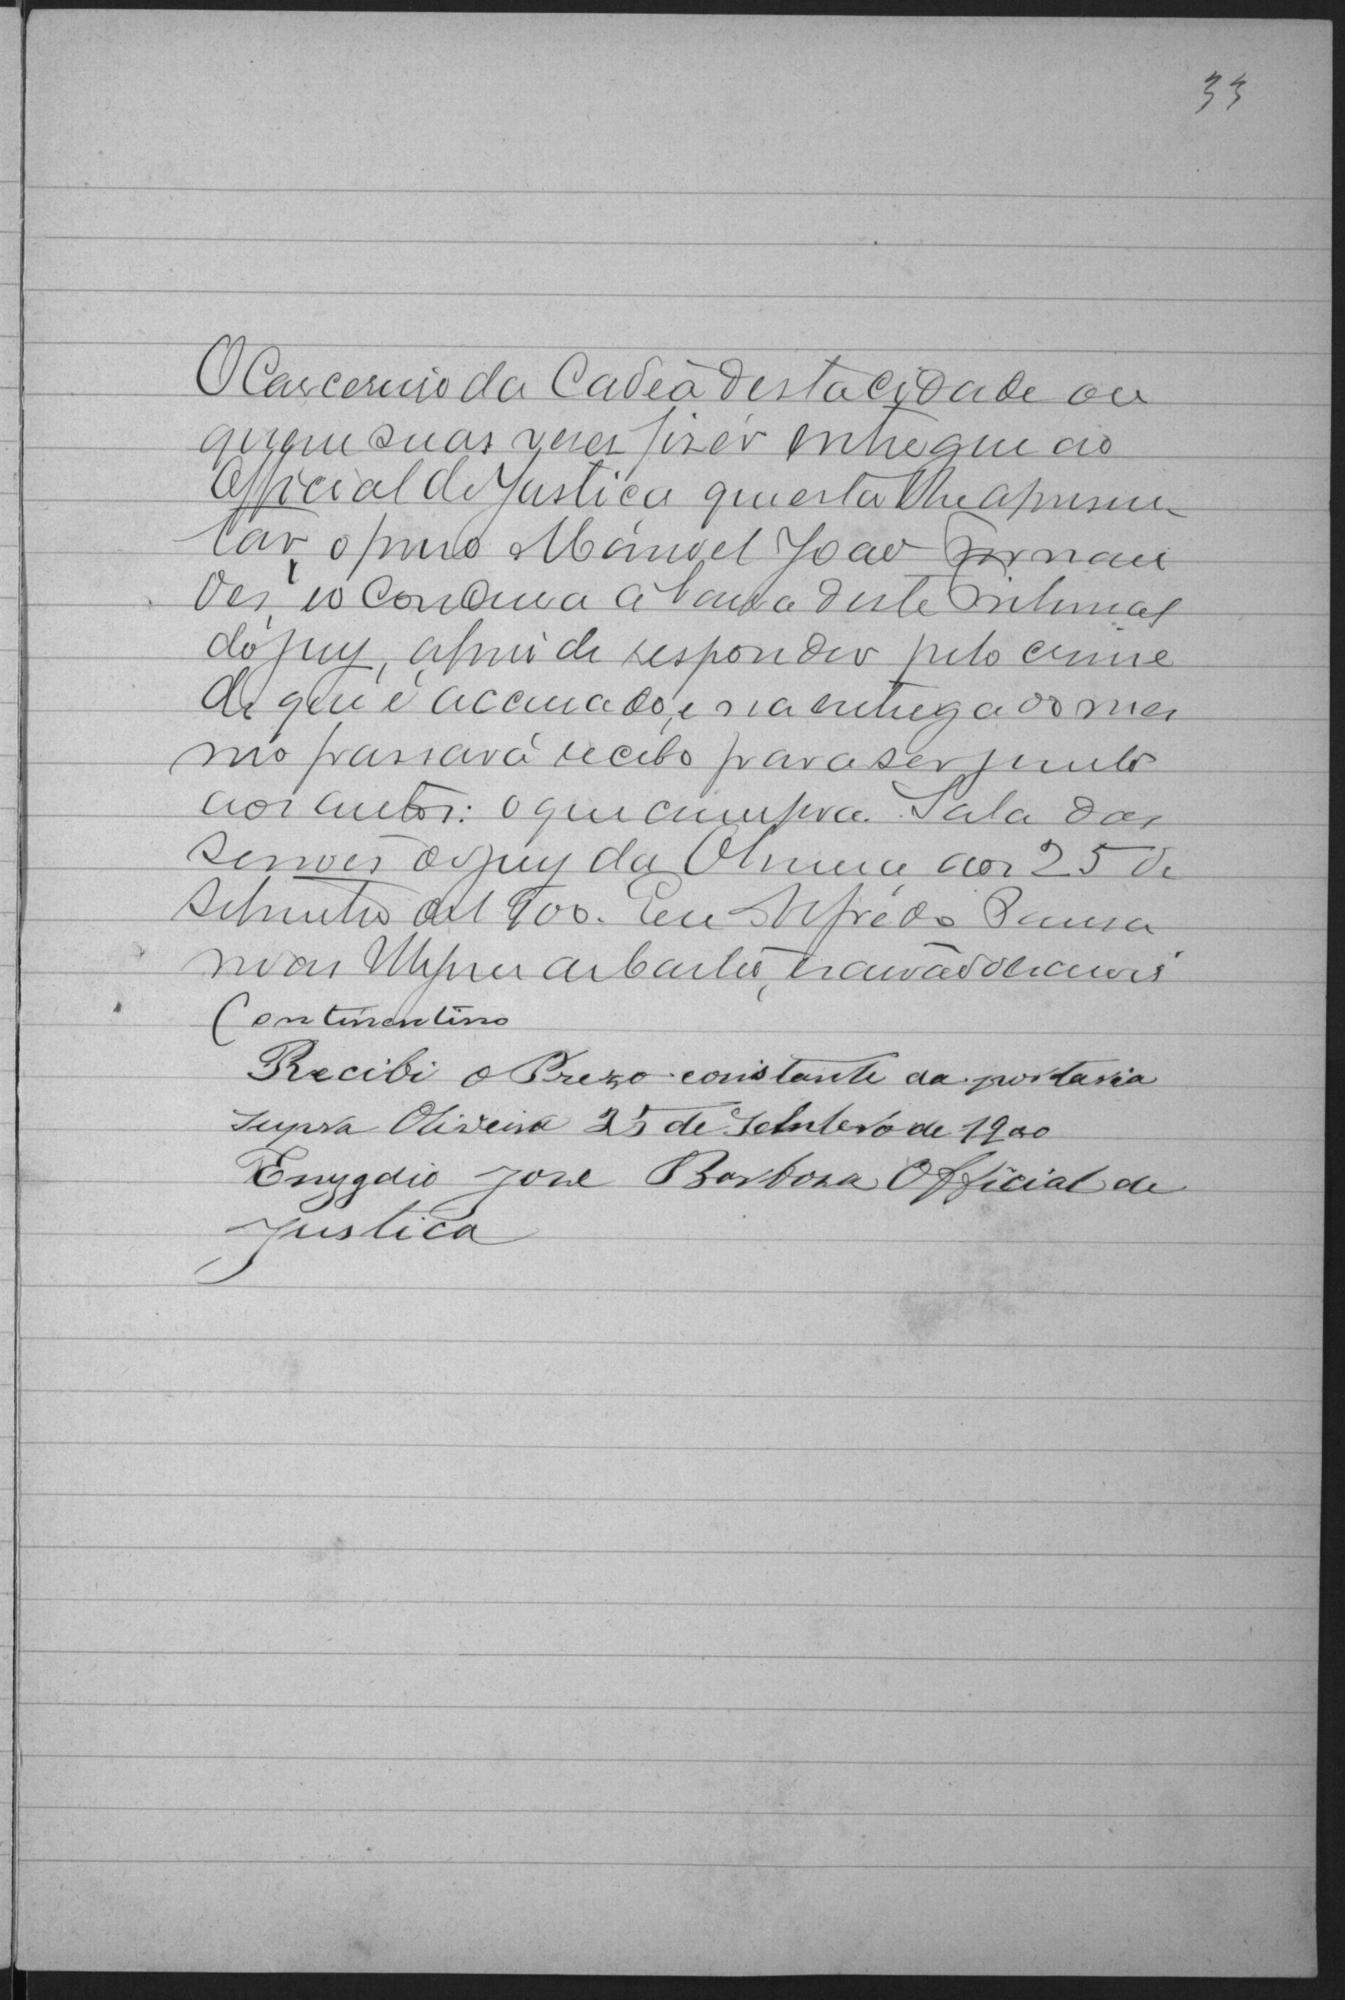 33
O Carcereiro da Cadeia desta cidade ou
quem suas veses fizér entregue ao
Official de Justica que esta lhe apresen
tar, o preso Manoel Joao Fernan
des, e o conduza a barra deste Tribunal
do jury, afim de responder pelo crime
de que é accusado, e na entrega do mes
mo passará recibo para ser junto
aos autos: o que cumpra. Sala das
sessoes do jury da Oliveira aos 25 de
Setembro de 1900. Eu Alfredo Pausa
nias, escrivão o escrevi
Continentino
Recibi o Prezo constante da portaria
supra Oliveira 25 de Setembro de 1900
Emygdio José Barboza Official de
Justica